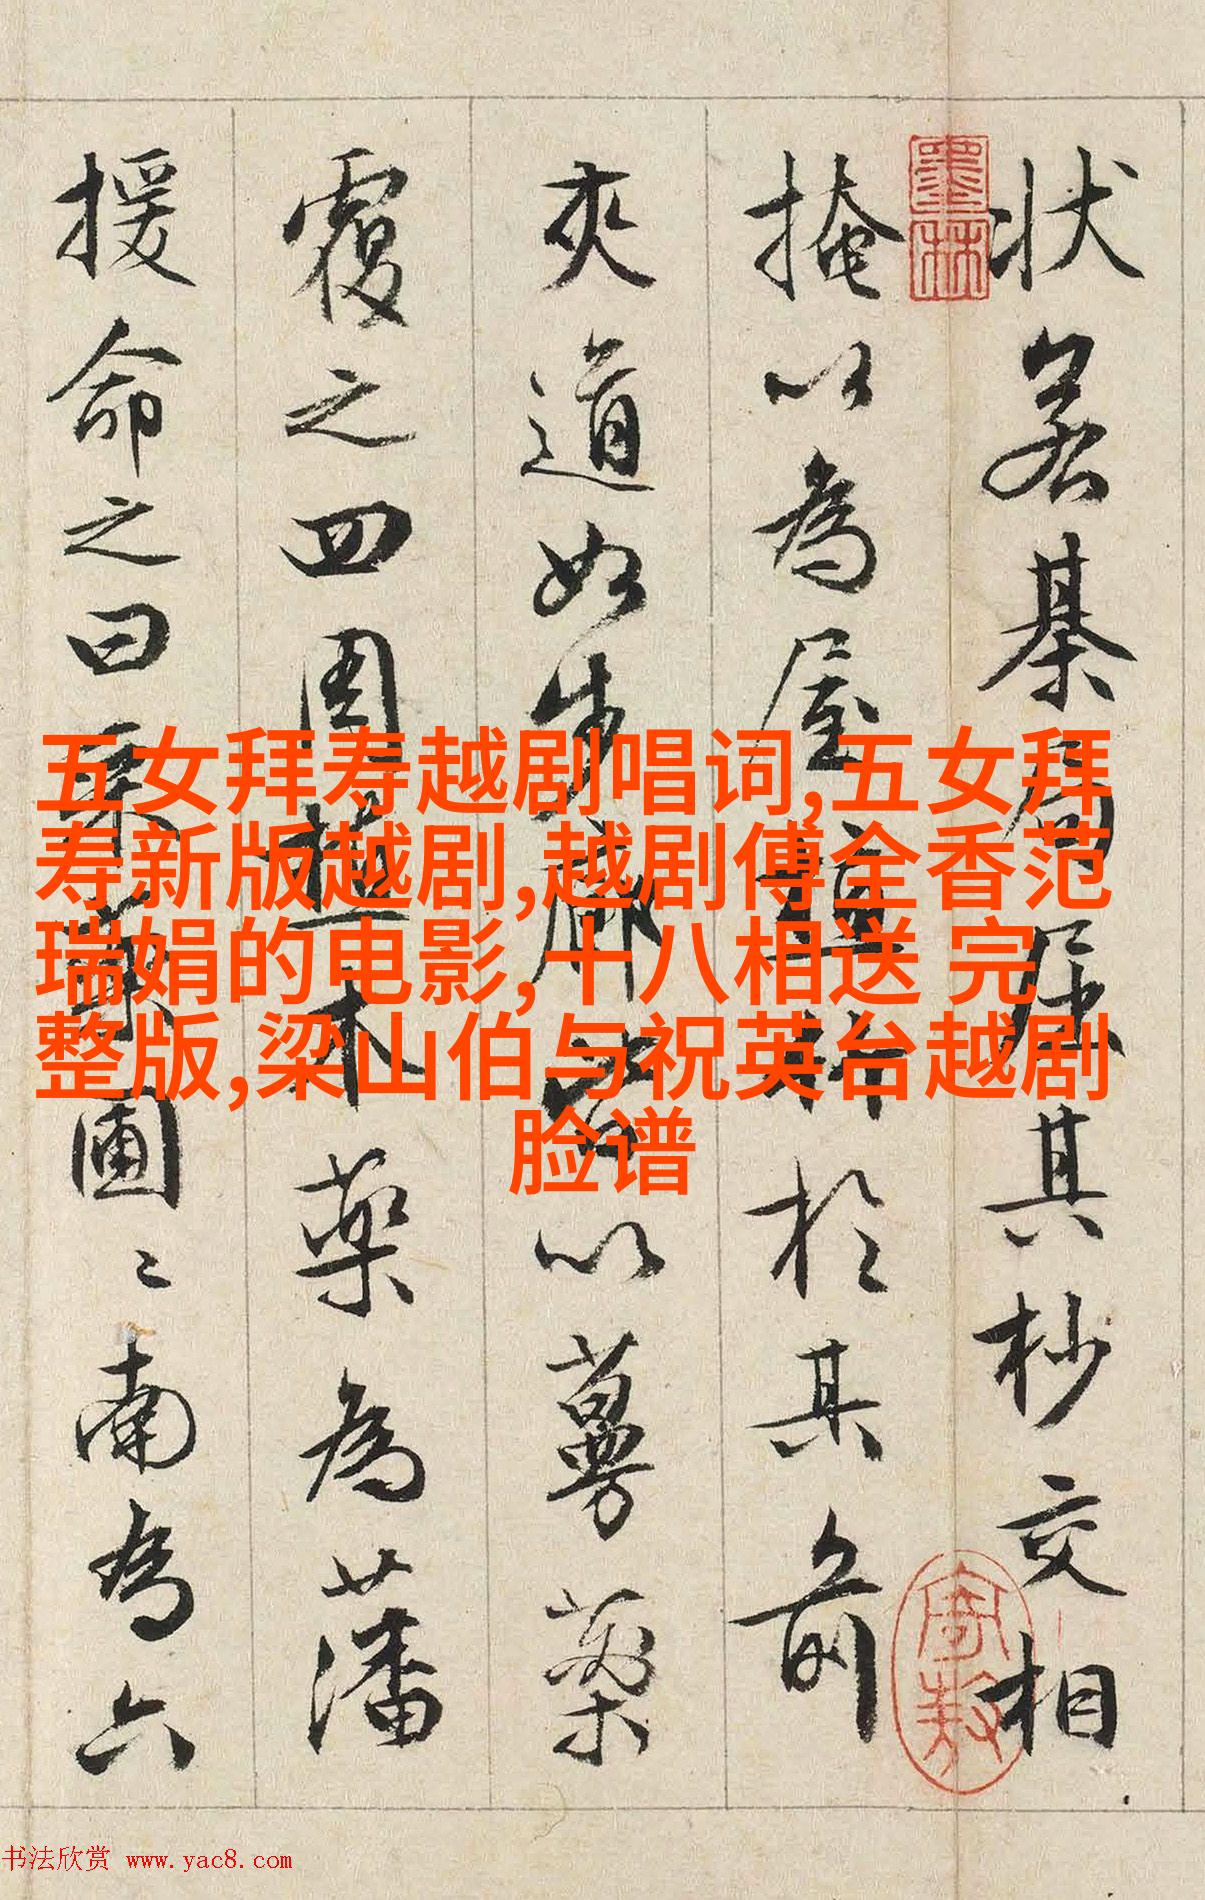 状若棊局屈其杪交相
掩以為屋植竹於其前
夾道如步廊皆以蔓藥
覆之四周植木藥為藩
援命之曰采藥圃〻南為六
墨林
五女拜寿越剧唱词,五女拜
寿新版越剧,越剧傅全香范
瑞娟的电影,十八相送 完
整版,梁山伯与祝英台越剧
脸谱
书法欣赏 www.yac8.com